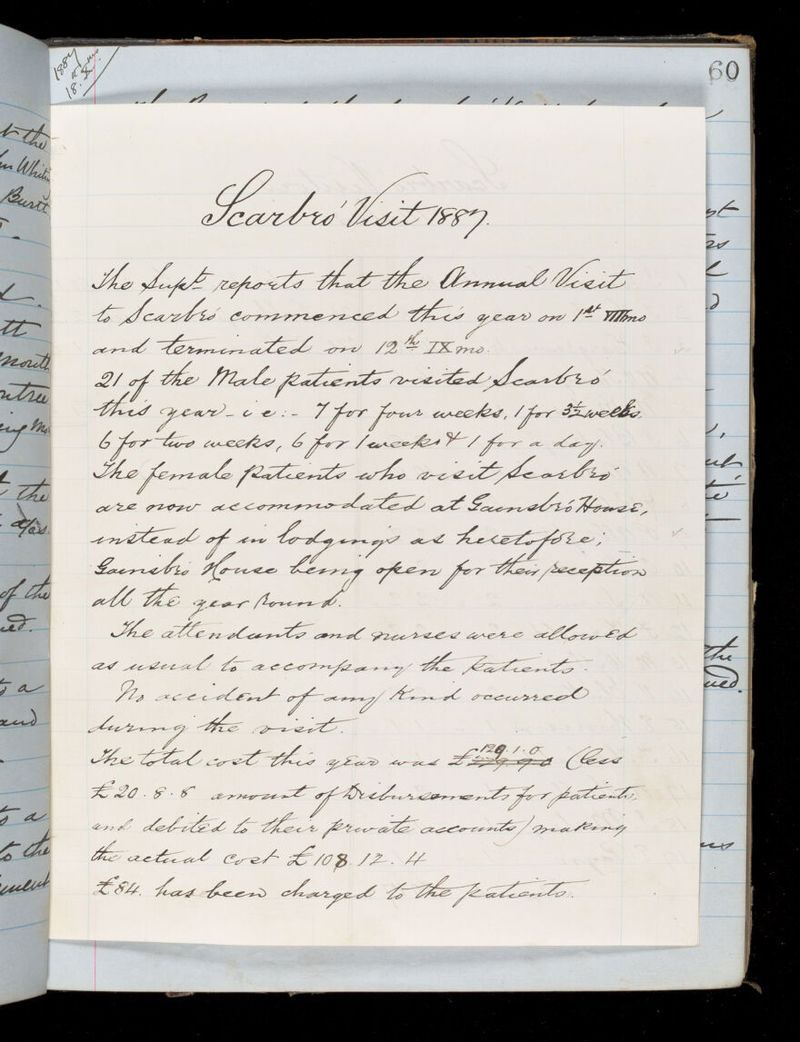 1887
60
t the
Burtt
Scarbro' Visit 1887.
The Supt. reports that the Annual Visit
to Scarbro' commenced this year on 1st VIIImo
and terminated on 12th IXmo.
21 of the Male patients visited Scarbro'
this year - i e :- 7 for four weeks, 1 for 3½ weeks
6 for two weeks, 6 for 1 week & 1 for a day.
The female patients who visit Scarbro'
are now accommodated at Gainsbro' House,
instead of in lodgings as heretofore;
Gainsbro House being open for their reception
all the year round.
The attendants and nurses were allowed
as usual to accompany the patients.
No accident of any kind occurred
during the visit.
The total cost this year was £129.1.0 (less
£20.8.8 amount of Disbursements for patients
and debited to their private accounts) making
the actual cost £108.12.4
£84. has been charged to the patients.